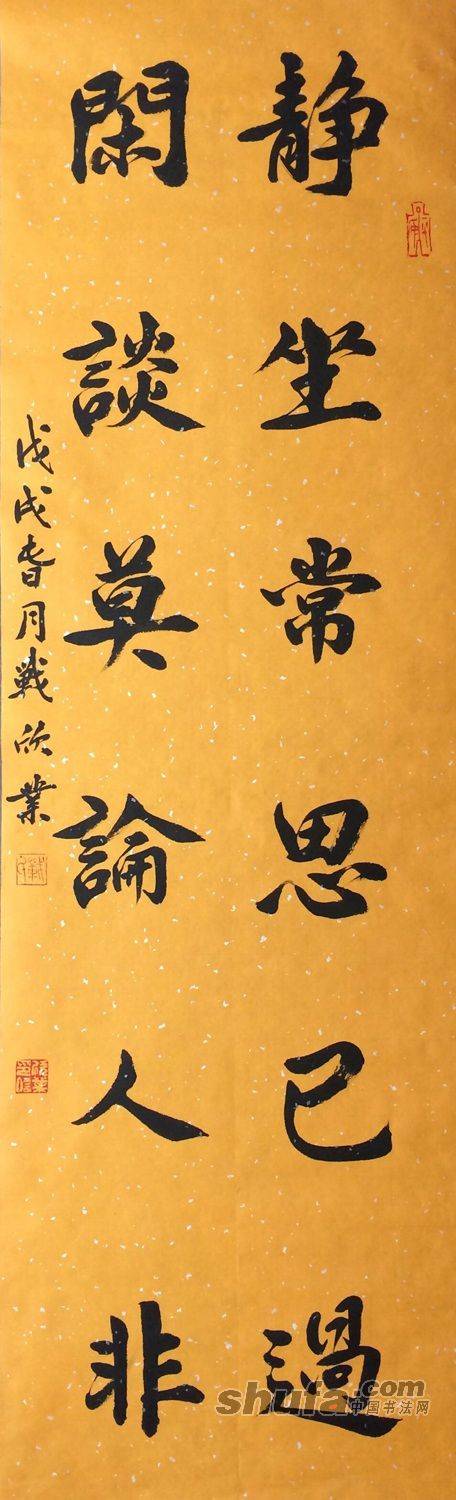 静坐常思己過
閑談莫論人非
戊戌春月戰欣業
shufa.com
中国书法网